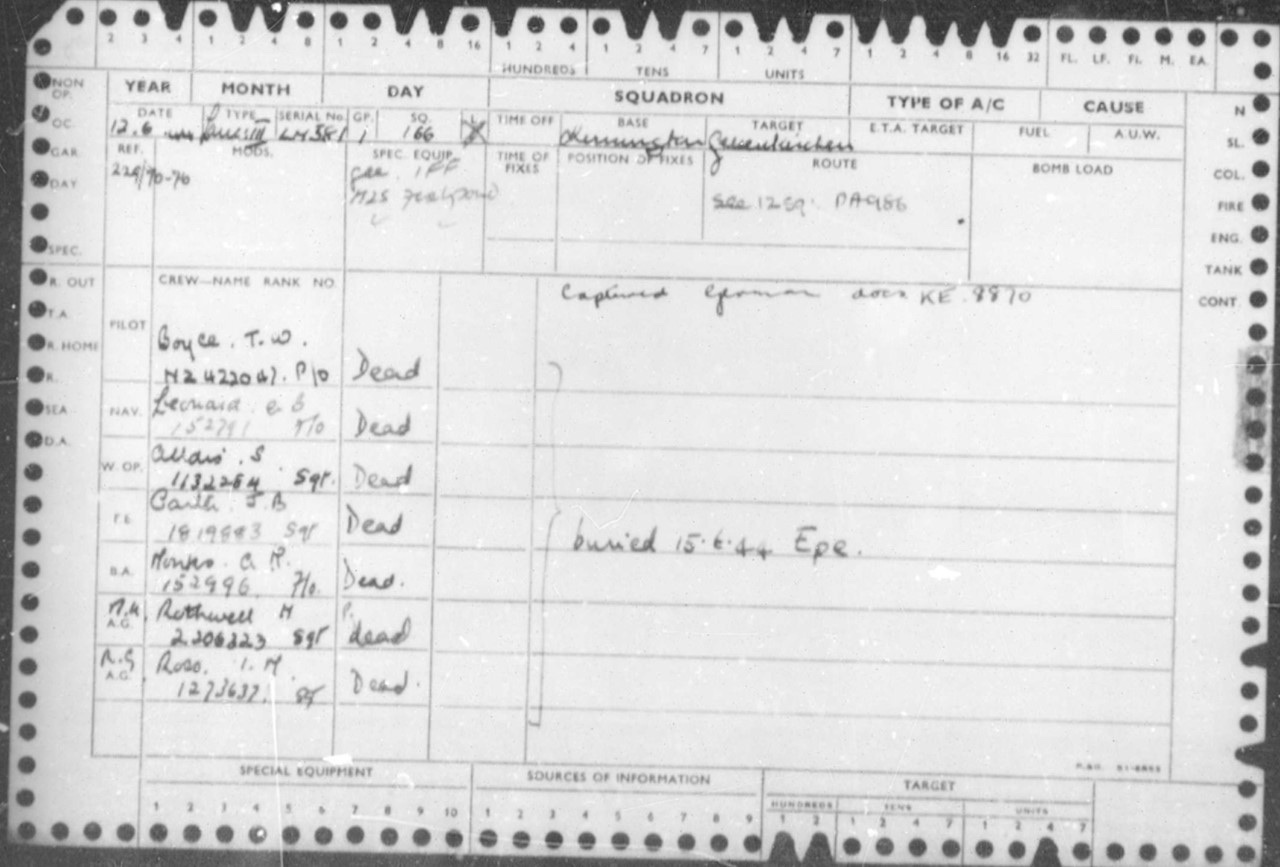 2 3 4 1 2 4 8 1 2 4 8 16 1 2 4 1 2 4 7 1 2 4 7 1 2 4 8 16 32 FL. LF. FI. M. EA.
HUNDREDS TENS UNITS
NON OP. YEAR MONTH DAY SQUADRON TYPE OF A/C CAUSE N
OC. DATE TYPE SERIAL No. GP. SQ. TIME OFF BASE TARGET E.T.A. TARGET FUEL A.U.W. SL.
12.6 LM581 1 166 X Gelsenkirchen
GAR. REF. MODS. SPEC. EQUIP. TIME OF FIXES POSITION OF FIXES ROUTE BOMB LOAD COL.
DAY Gee. IFF
H2S Fishpond See 12 Sq. PA986 FIRE
ENG.
SPEC. TANK
R. OUT CREW—NAME RANK NO. CONT.
Captured German docs KE.8870
T.A. PILOT
R. HOME Boyce. T.W.
R. NZ 422047. P/O Dead
SEA NAV. Leonard. E B
152791 F/O Dead
D.A. W. OP. S
1132264 Sgt. Dead
F.E. J.B
1819883 Sgt Dead
buried 15.6.44 Epe.
B.A. R.
152996 F/O. Dead.
M.U. A.G. Rothwell H
2206323 Sgt dead
R.G A.G. Ross. I.M.
1273637. Dead.
SPECIAL EQUIPMENT SOURCES OF INFORMATION TARGET
HUNDREDS TENS UNITS
1 2 3 4 5 6 7 8 9 10 1 2 3 4 5 6 7 8 9 1 2 1 2 4 7 1 2 4 7